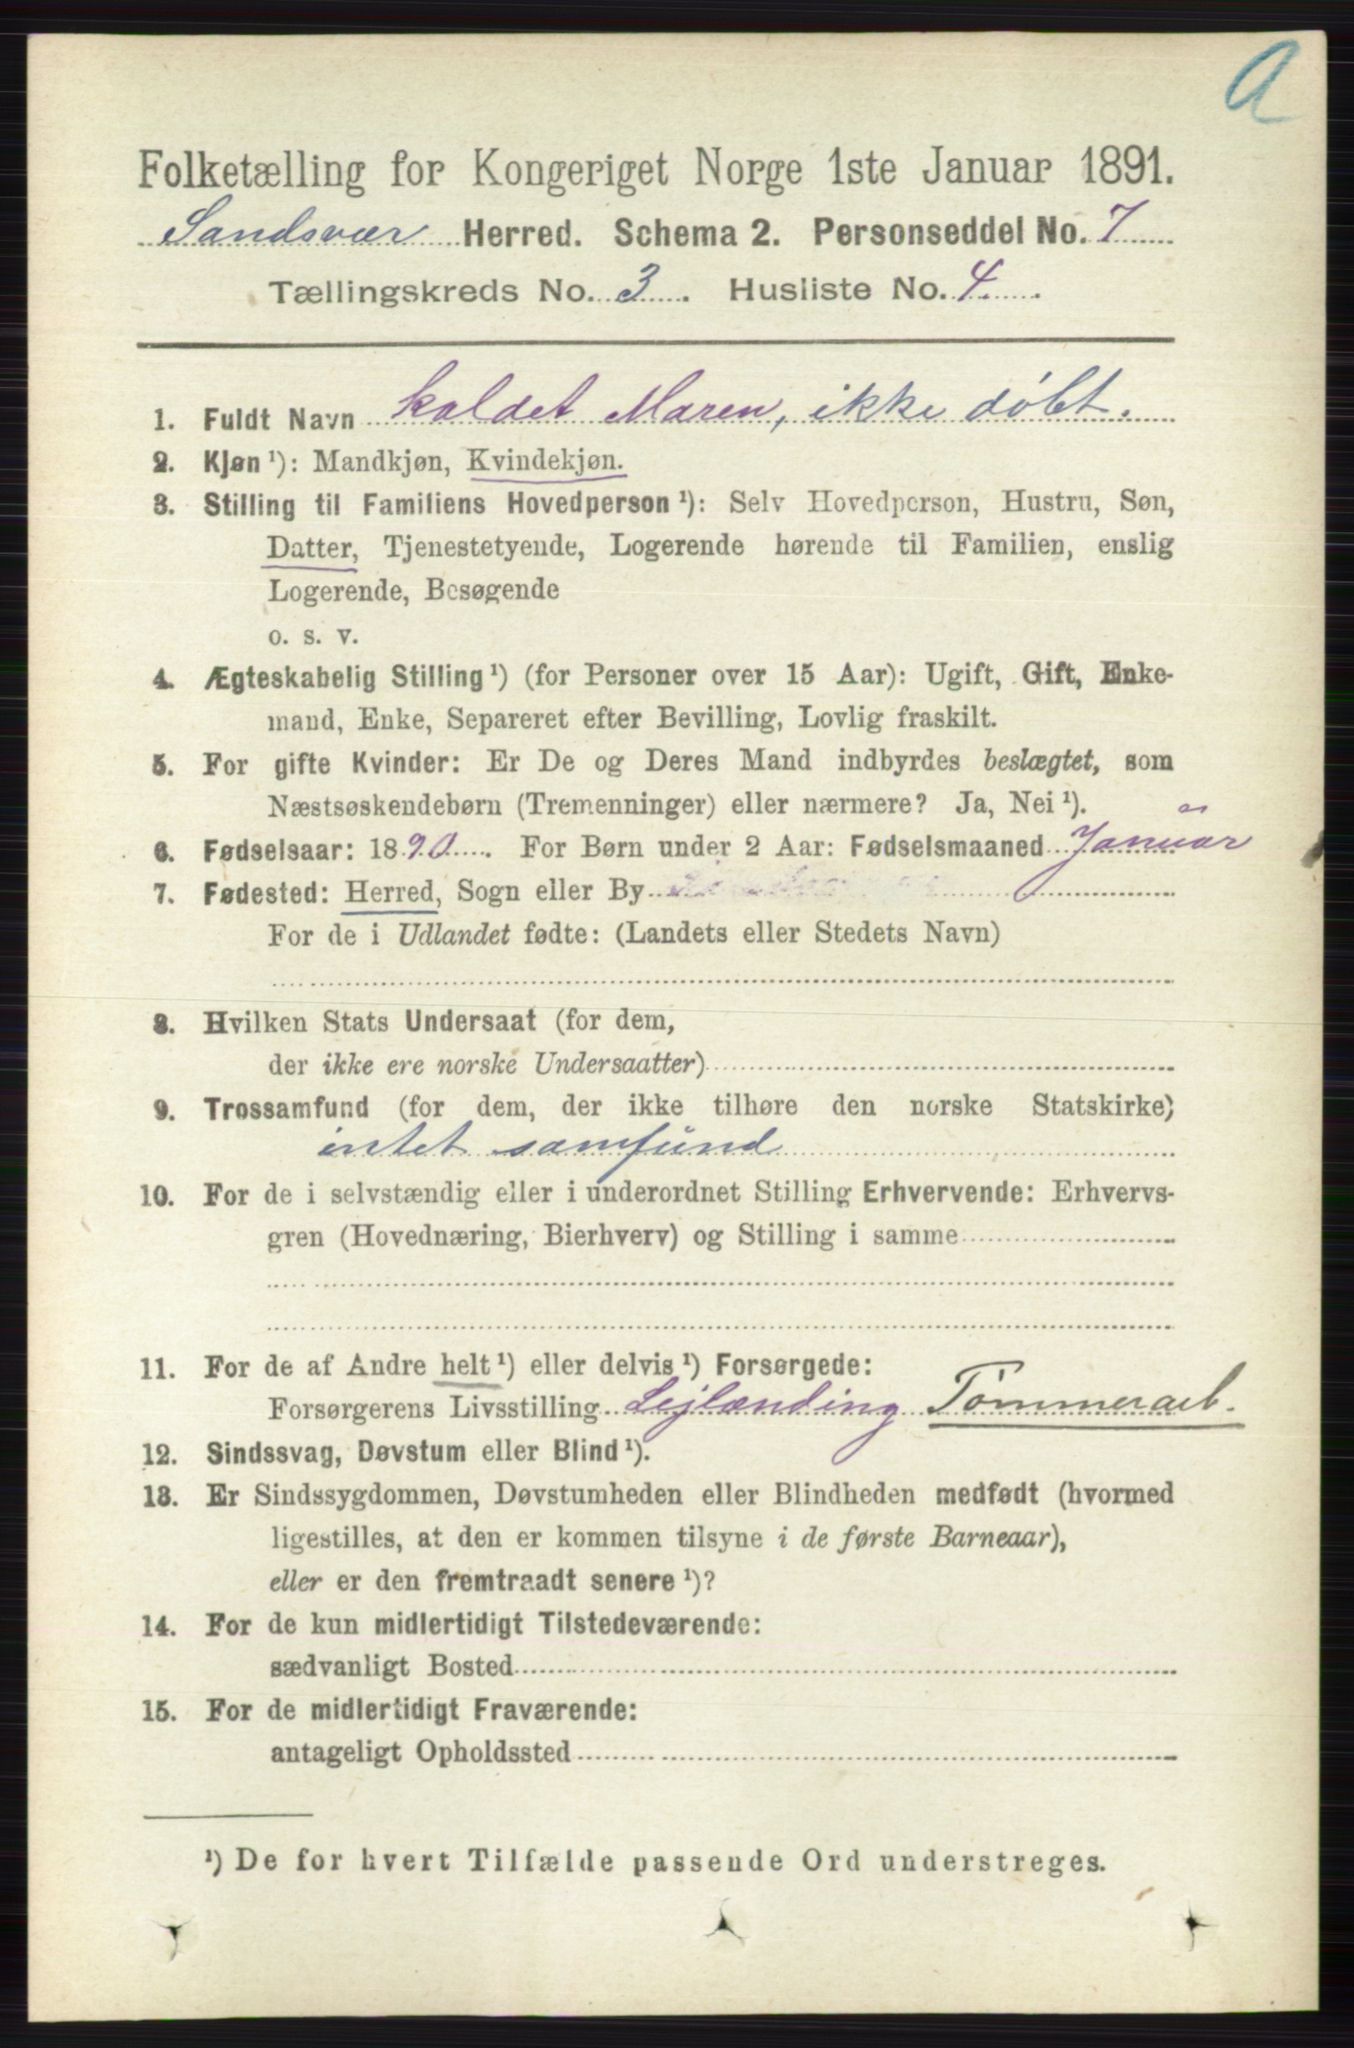 A
Folketælling for Kongeriget Norge 1ste Januar 1891.
Sandsvær Herred. Schema 2. Personseddel No. 7
Tællingskreds No. 3. Husliste No. 4
1. Fuldt Navn kaldet Maren, ikke døbt.
2. Kjøn ¹): Mandkjøn, Kvindekjøn.
3. Stilling til Familiens Hovedperson ¹): Selv Hovedperson, Hustru, Søn,
Datter, Tjenestetyende, Logerende hørende til Familien, enslig
Logerende, Besøgende
o. s. v.
4. Ægteskabelig Stilling ¹) (for Personer over 15 Aar): Ugift, Gift, Enke-
mand, Enke, Separeret efter Bevilling, Lovlig fraskilt.
5. For gifte Kvinder: Er De og Deres Mand indbyrdes beslægtet, som
Næstsøskendebørn (Tremenninger) eller nærmere? Ja, Nei ¹).
6. Fødselsaar: 1890. For Børn under 2 Aar: Fødselsmaaned Januar
7. Fødested: Herred, Sogn eller By
For de i Udlandet fødte: (Landets eller Stedets Navn)
8. Hvilken Stats Undersaat (for dem,
der ikke ere norske Undersaatter)
9. Trossamfund (for dem, der ikke tilhøre den norske Statskirke)
intet samfund
10. For de i selvstændig eller i underordnet Stilling Erhvervende: Erhvervs-
gren (Hovednæring, Bierhverv) og Stilling i samme
11. For de af Andre helt ¹) eller delvis ¹) Forsørgede:
Forsørgerens Livsstilling Lejlænding Tømmerarb.
12. Sindssvag, Døvstum eller Blind ¹).
13. Er Sindssygdommen, Døvstumheden eller Blindheden medfødt (hvormed
ligestilles, at den er kommen tilsyne i de første Barneaar),
eller er den fremtraadt senere ¹)?
14. For de kun midlertidigt Tilstedeværende:
sædvanligt Bosted
15. For de midlertidigt Fraværende:
antageligt Opholdssted
¹) De for hvert Tilfælde passende Ord understreges.